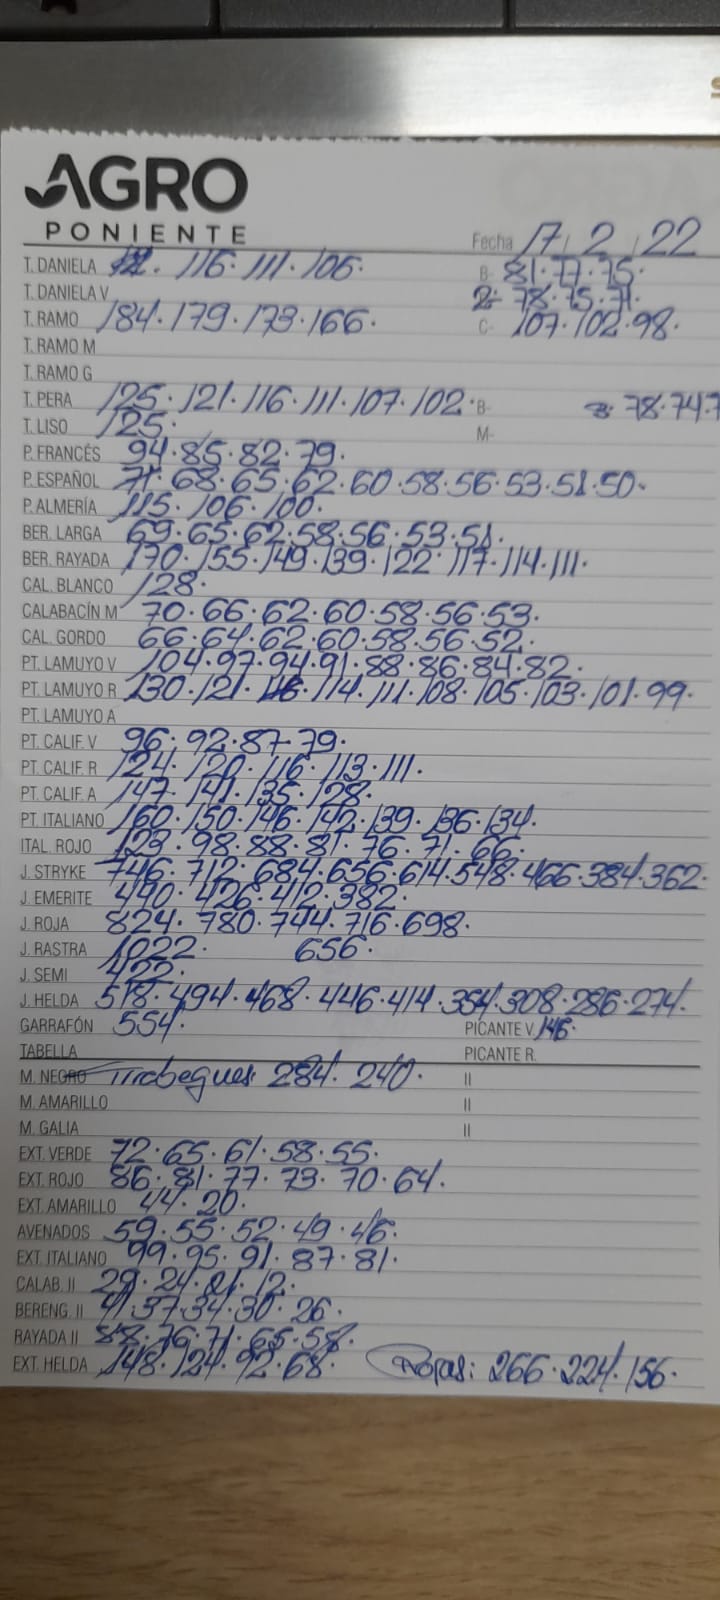 AGRO
PONIENTE
Fecha 17 / 2 / 22
T. DANIELA 116· 111· 106· B- 81·77·75·
T. DANIELA V 2- 78·75·71·
T. RAMO 184·179·173·166· C- 107·102·98·
T. RAMO M
T. RAMO G
T. PERA 125·121·116·111·107·102· B- 78·74·7
T. LISO 125· M-
P. FRANCÉS 94·85·82·79·
P. ESPAÑOL 71·68·65·62·60·58·56·53·51·50·
P. ALMERÍA 115·106·100·
BER. LARGA 69·65·62·58·56·53·51·
BER. RAYADA 170·155·149·139·122·117·114·111·
CAL. BLANCO 128·
CALABACÍN M 70·66·62·60·58·56·53·
CAL. GORDO 66·64·62·60·58·56·52·
PT. LAMUYO V 104·97·94·91·88·86·84·82·
PT. LAMUYO R 130·121·116·114·111·108·105·103·101·99·
PT. LAMUYO A
PT. CALIF. V 96·92·87·79·
PT. CALIF. R 124·120·116·113·111·
PT. CALIF. A 147·141·135·128·
PT. ITALIANO 160·150·146·142·139·136·134·
ITAL. ROJO 123·98·88·81·76·71·66·
J. STRYKE 746·712·684·656·614·548·466·384·362·
J. EMERITE 490·426·412·382·
J. ROJA 824·780·744·716·698·
J. RASTRA 1022· 656·
J. SEMI 422·
J. HELDA 518·494·468·446·414·354·308·286·274·
GARRAFÓN 554· PICANTE V. 146·
TABELLA PICANTE R.
M. NEGRO 284·240· II
M. AMARILLO II
M. GALIA II
EXT. VERDE 72·65·61·58·55·
EXT. ROJO 86·81·77·73·70·64·
EXT. AMARILLO 44·20·
AVENADOS 59·55·52·49·46·
EXT. ITALIANO 99·95·91·87·81·
CALAB. II 29·24·21·12·
BERENG. II 41·37·34·30·26·
RAYADA II 88·76·71·65·58·
EXT. HELDA 148·124·92·68· Rojas: 266·224·156·